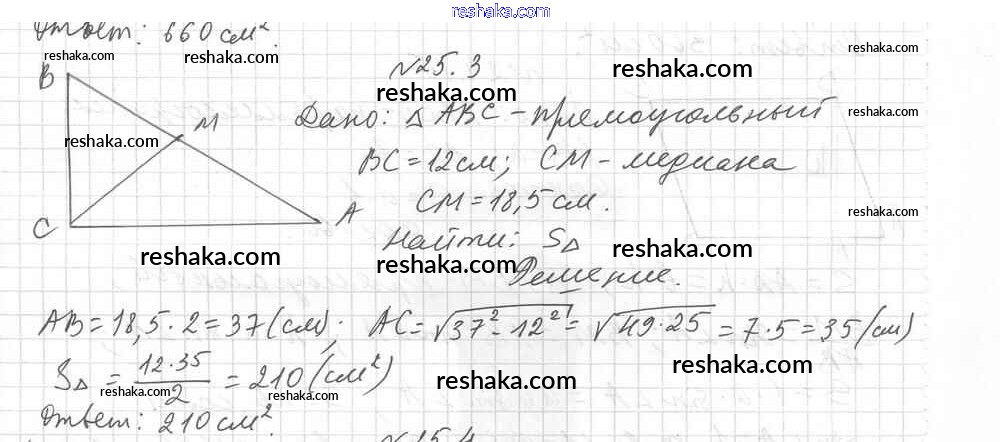 reshaka.com
Ответ: 660 см².
reshaka.com
reshaka.com
reshaka.com
B
№25.3
reshaka.com
reshaka.com
M
Дано: △ ABC – прямоугольный
reshaka.com
BC = 12 см; CM – медиана
CM = 18,5 см.
C
A
reshaka.com
Найти: S△
reshaka.com
reshaka.com
reshaka.com
Решение.
AB = 18,5 · 2 = 37 (см); AC = √37² - 12² = √49·25 = 7·5 = 35 (см)
S△ = 12·35/2 = 210 (см²)
reshaka.com
reshaka.com
reshaka.com
reshaka.com
Ответ: 210 см².